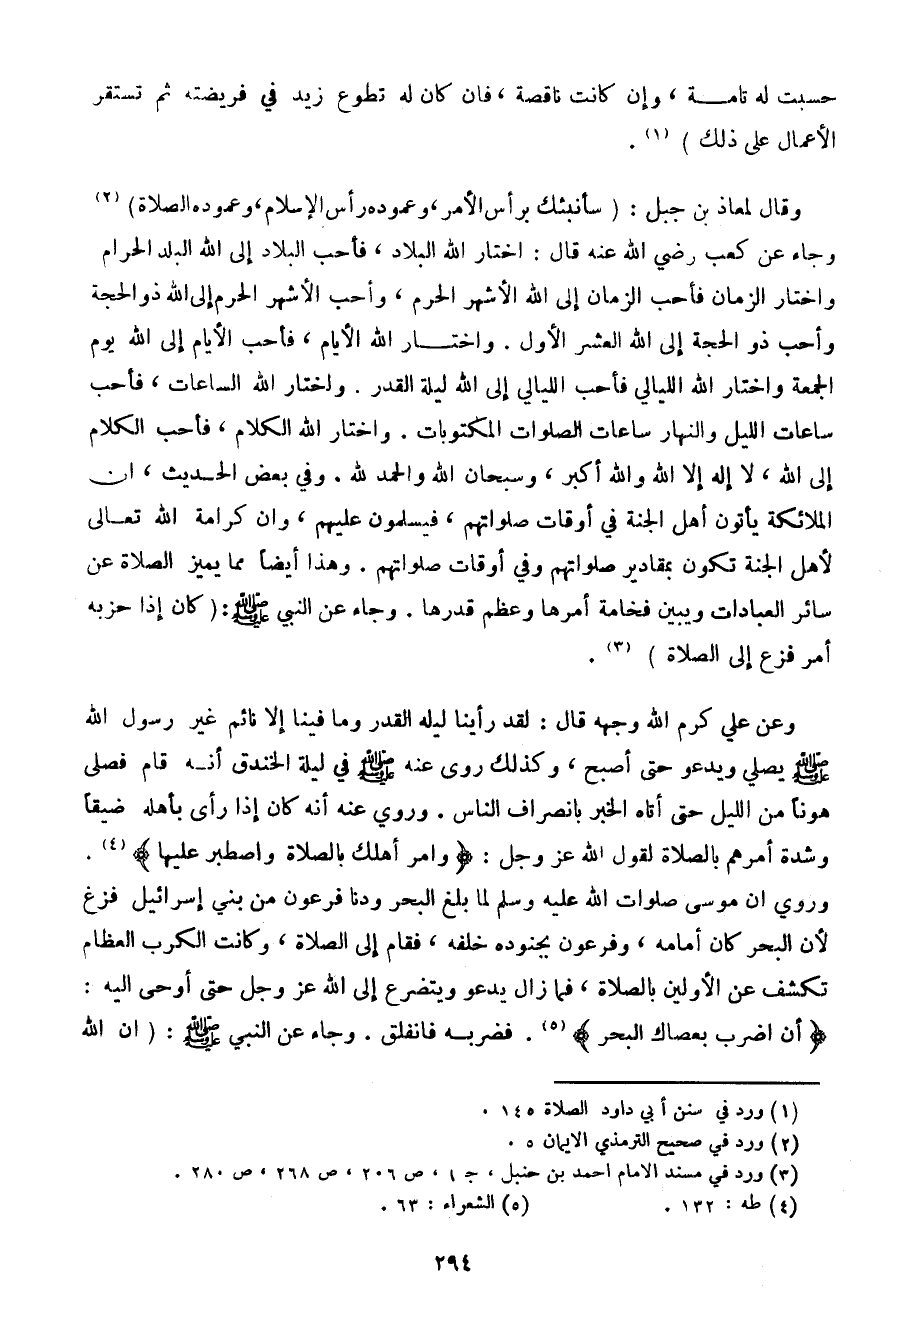 حسبت له تامـــة ، وإن كانت ناقصة ، فان كان له تطوع زيد في فريضته ثم تستقر
الأعمال على ذلك ) (١) .
وقال لمعاذ بن جبل : ( سأنبئك برأس الأمر، وعموده رأس الإسلام، وعموده الصلاة) (٢)
وجاء عن كعب رضي الله عنه قال : اختار الله البلاد ، فأحب البلاد إلى الله البلد الحرام
واختار الزمان فأحب الزمان إلى الله الأشهر الحرم ، وأحب الأشهر الحرم إلى الله ذو الحجة
وأحب ذو الحجة إلى الله العشر الأول . واختـــار الله الأيام ، فأحب الأيام إلى الله يوم
الجمعة واختار الله الليالي فأحب الليالي إلى الله ليلة القدر . واختار الله الساعات ، فأحب
ساعات الليل والنهار ساعات الصلوات المكتوبات . واختار الله الكلام ، فأحب الكلام
إلى الله ، لا إله إلا الله والله أكبر ، وسبحان الله والحمد لله . وفي بعض الحـديث ، ان
الملائكة يأتون أهل الجنة في أوقات صلواتهم ، فيسلمون عليهم ، وان كرامة الله تعـالى
لأهل الجنة تكون بمقادير صلواتهم وفي أوقات صلواتهم . وهذا أيضاً مما يميز الصلاة عن
سائر العبادات ويبين فخامة أمرها وعظم قدرها . وجاء عن النبي ﷺ :( كان إذا حزبه
أمر فزع إلى الصلاة ) (٣) .
وعن علي كرم الله وجهه قال : لقد رأينا ليله القدر وما فينا إلا نائم غير رسول الله
ﷺ يصلي ويدعو حتى أصبح ، وكذلك روى عنه ﷺ في ليلة الخندق أنـه قام فصلى
هوناً من الليل حتى أتاه الخبر بانصراف الناس . وروي عنه أنه كان إذا رأى بأهله ضيقاً
وشدة أمرهم بالصلاة لقول الله عز وجل : ﴿ وامر أهلك بالصلاة واصطبر عليها ﴾ (٤) .
وروي ان موسى صلوات الله عليه وسلم لما بلغ البحر ودنا فرعون من بني إسرائيل فزغ
لأن البحر كان أمامه ، وفرعون بجنوده خلفه ، فقام إلى الصلاة ، وكانت الكرب العظام
تكشف عن الأولين بالصلاة ، فما زال يدعو ويتضرع إلى الله عز وجل حتى أوحى اليه :
﴿ أن اضرب بعصاك البحر ﴾ (٥) . فضربـه فانفلق . وجاء عن النبي ﷺ : ( ان الله
(١) ورد في سنن أبي داود الصلاة ١٤٥ .
(٢) ورد في صحيح الترمذي الايمان ٥ .
(٣) ورد في مسند الامام احمد بن حنبل ، جـ ١ ، ص ٢٠٦ ، ص ٢٦٨ ، ص ٢٨٠ .
(٤) طه : ١٣٢ . (٥) الشعراء : ٦٣ .
٢٩٤